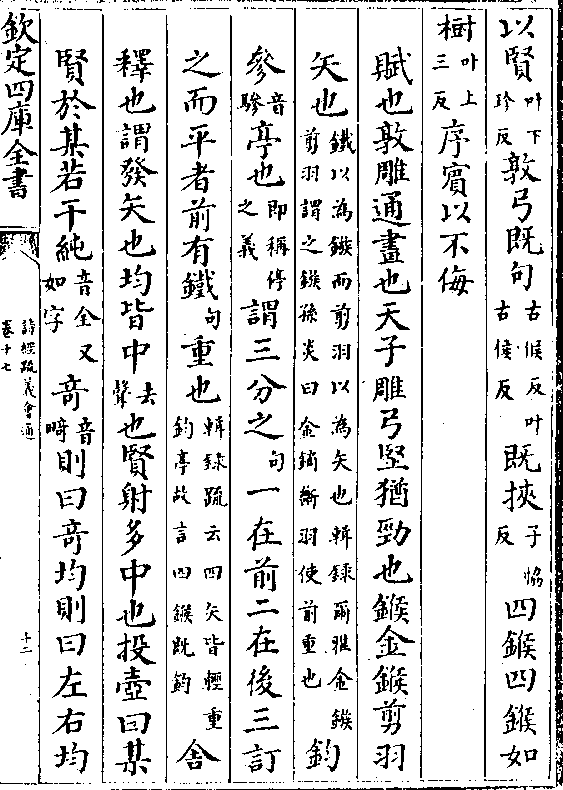 以賢叶下珍反敦弓既句古候反叶古侯反既挾子恊反四鍭四鍭如
樹叶上三反序賓以不侮
賦也敦雕通畫也天子雕弓堅猶勁也鍭金鍭剪羽
矢也鐵以為鏃而剪羽以為矢也輯録爾雅金鏃剪羽謂之鍭孫炎曰金鏑斷羽使前重也鈞
參音驂亭也即稱停之義謂三分之句一在前二在後三訂
之而平者前有鐵句重也輯録疏云四矢皆輕重鈞亭故言四鍭既鈞舍
釋也謂發矢也均皆中去聲也賢射多中也投壺曰某
賢於某若干純音全又如字奇音畸則曰奇均則曰左右均
欽定四庫全書
詩經疏義會通
卷十七
十二